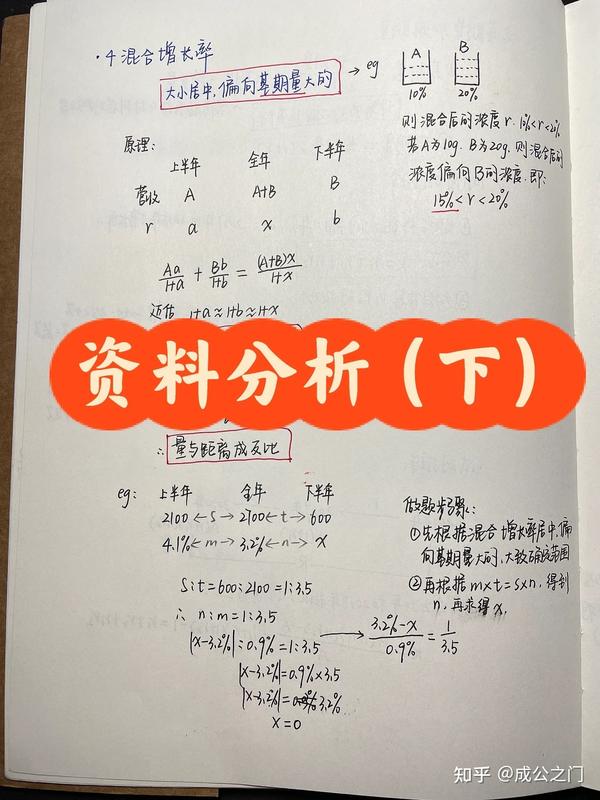 ·4 混合增长率
大小居中,偏向基期量大的 → eg
A B
10% 20%
则混合后的浓度 r. 10%<r<20%
若A为10g. B为20g. 则混合后的
浓度偏向B的浓度. 即:
15%<r<20%
原理:
上半年 全年 下半年
营收 A A+B B
r a x b
Aa/1+a + Bb/1+b = (A+B)x/1+x
近估 1+a≈1+b≈1+x
资料分析（下）
∴ 量与距离成反比
eg: 上半年 全年 下半年
2100 ←s→ 2700 ←t→ 600
4.1% ←m→ 3.2% ←n→ x
s:t=600:2100=1:3.5
∴ n:m=1:3.5
|x-3.2%|:0.9%=1:3.5
|x-3.2%|=0.9%×3.5
|x-3.2%|= 3.2%
x=0
做题步骤:
①先根据混合增长率居中,偏
向基期量大的,大致确定范围
②再根据 m×t=s×n, 得到
n, 再求得 x,
→ 3.2%-x/0.9% = 1/3.5
知乎 @成公之门